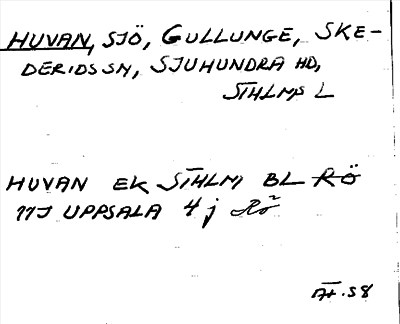 HUVAN, SJÖ, GULLUNGE, SKE-
DERIDS SN, SJUHUNDRA HD,
STHLMS L
HUVAN EK STHLM BL RÖ
11J UPPSALA 4j Rö²